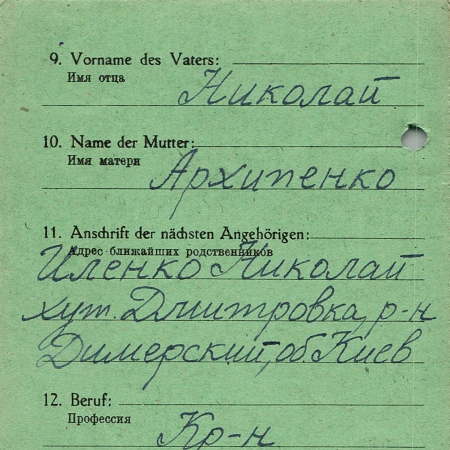 9. Vorname des Vaters:
Имя отца
Николай
10. Name der Mutter:
Имя матери
Архипенко
11. Anschrift der nächsten Angehörigen:
Адрес ближайших родственников
Иленко Николай
хут. Дмитровка, р-н
Димерский, об. Киев
12. Beruf:
Профессия
Кр-н